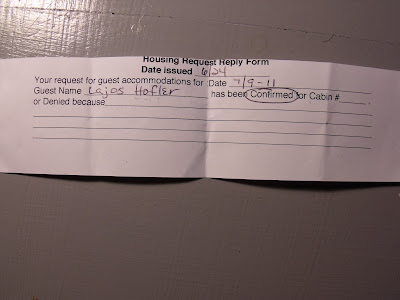 Housing Request Reply Form
Date issued 6/24
Your request for guest accommodations for Date 7/9-11
Guest Name Lajos Hofler has been Confirmed for Cabin #
or Denied because